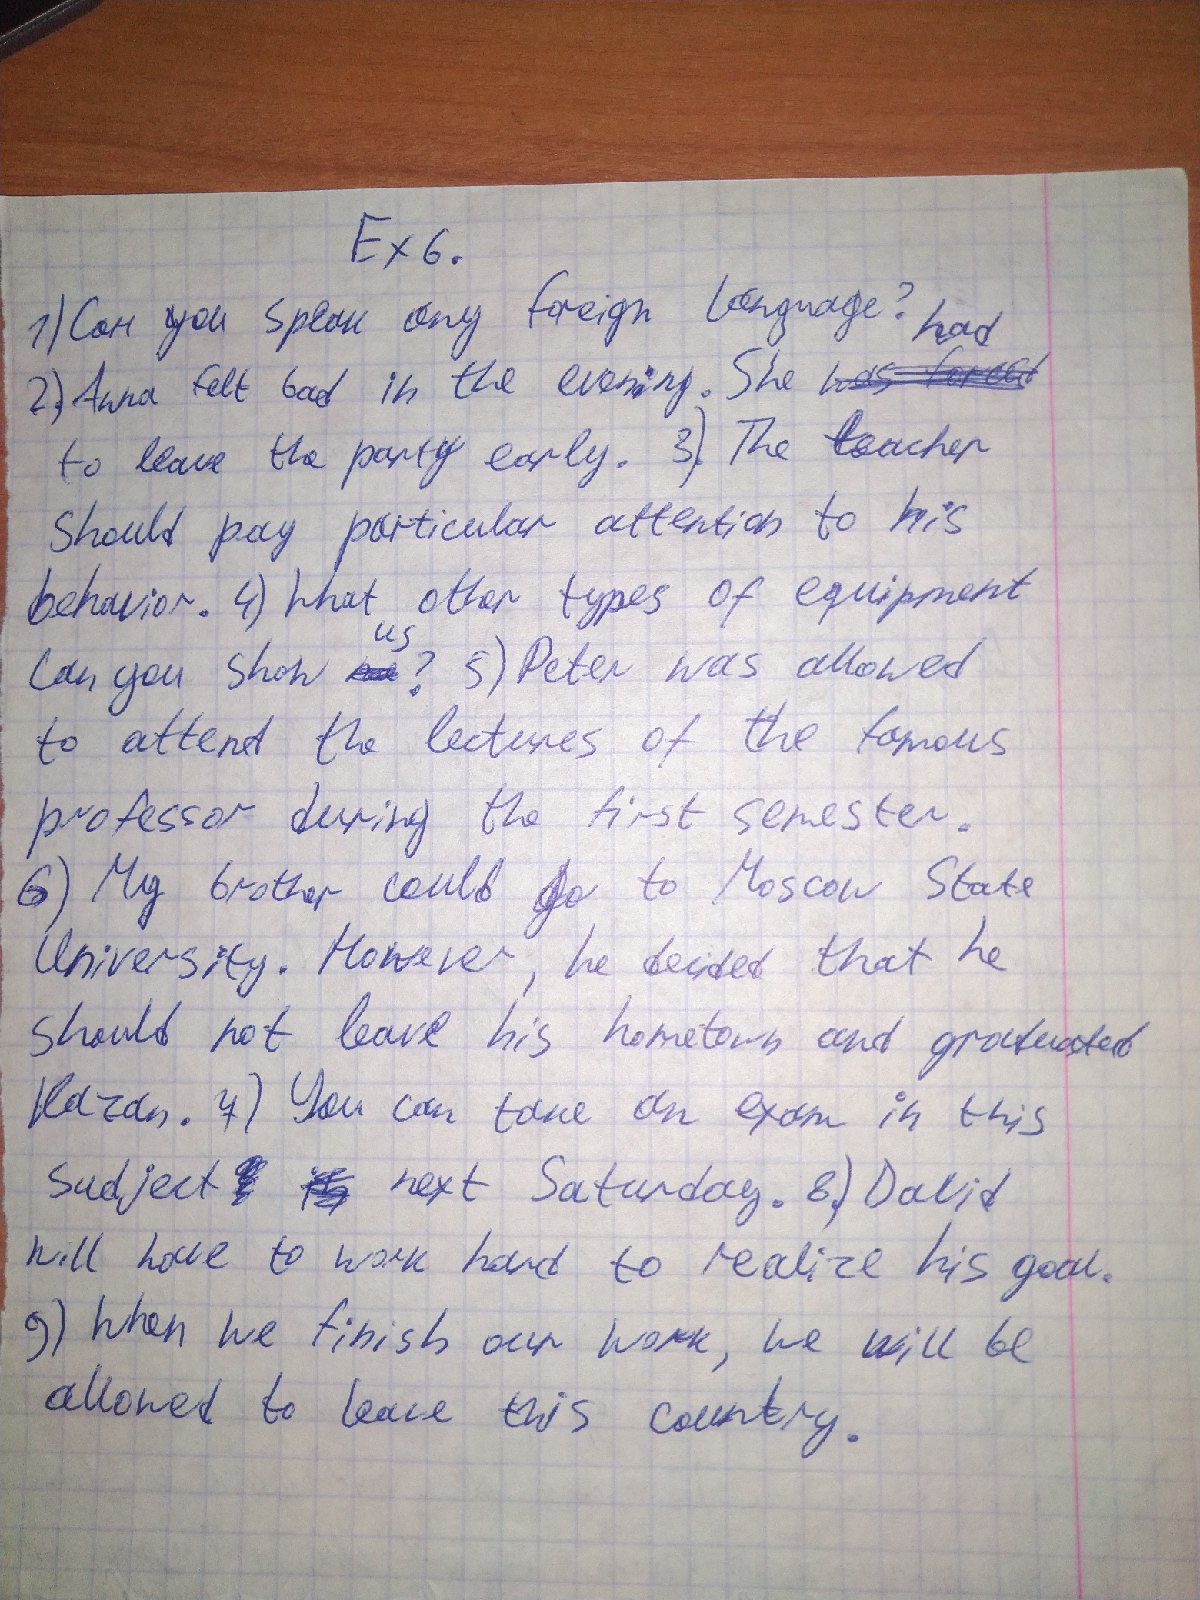 Ex 6.
1) Can you speak any foreign language?
2) Anna felt bad in the evening. She had
to leave the party early. 3) The teacher
should pay particular attention to his
behavior. 4) What other types of equipment
can you show us? 5) Peter was allowed
to attend the lectures of the famous
professor during the first semester.
6) My brother could go to Moscow State
University. However, he decided that he
should not leave his hometown and graduated
Kazan. 7) You can take an exam in this
sudject next Saturday. 8) David
will have to work hard to realize his goal.
9) When we finish our work, we will be
allowed to leave this country.